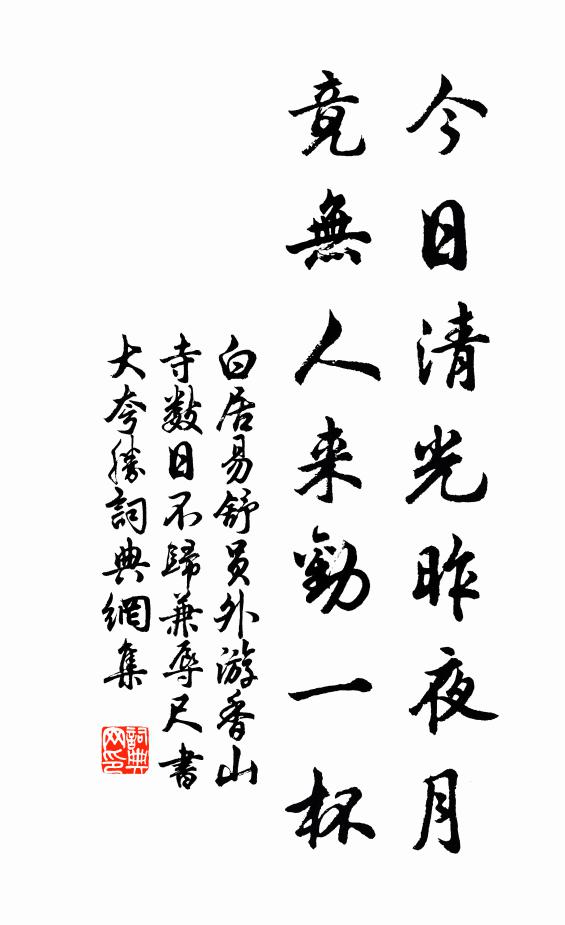 今日清光昨夜月
竟無人来勸一杯
白居易舒员外游香山
寺数日不歸兼辱尺書
大夸勝詞典網集
詞典
网印